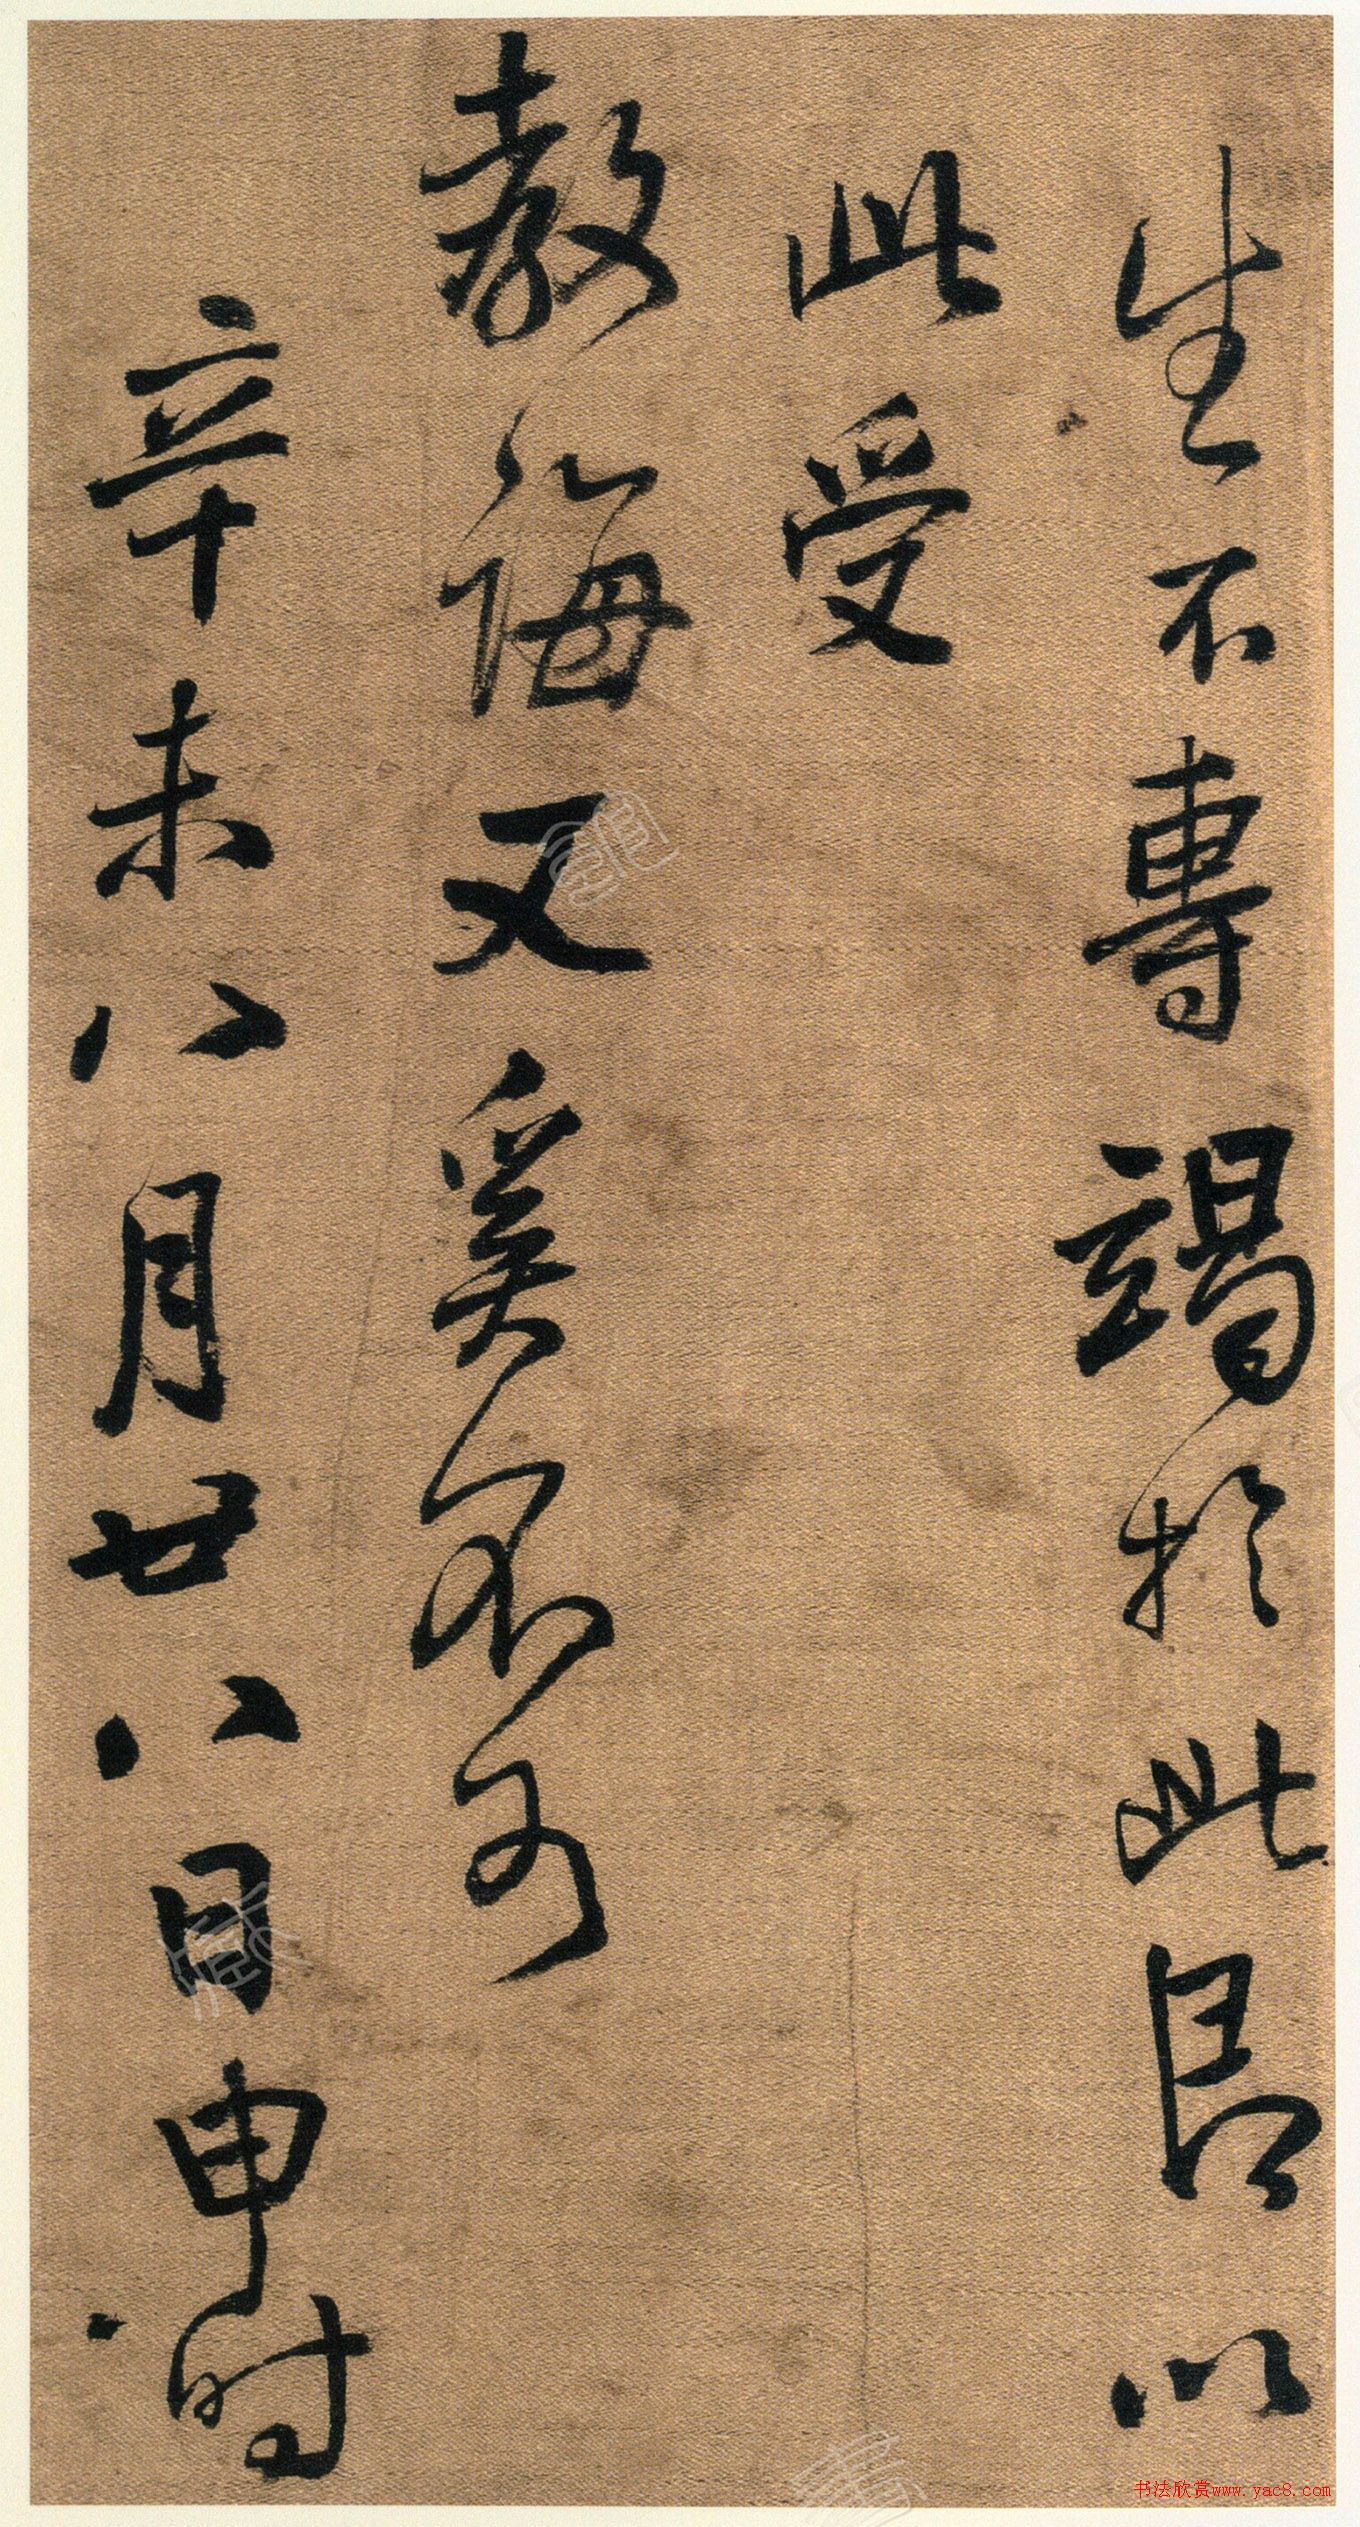 生不專竭於此以
此受
教誨又奚不可
辛未八月廿八日申時
书法欣赏www.yac8.com